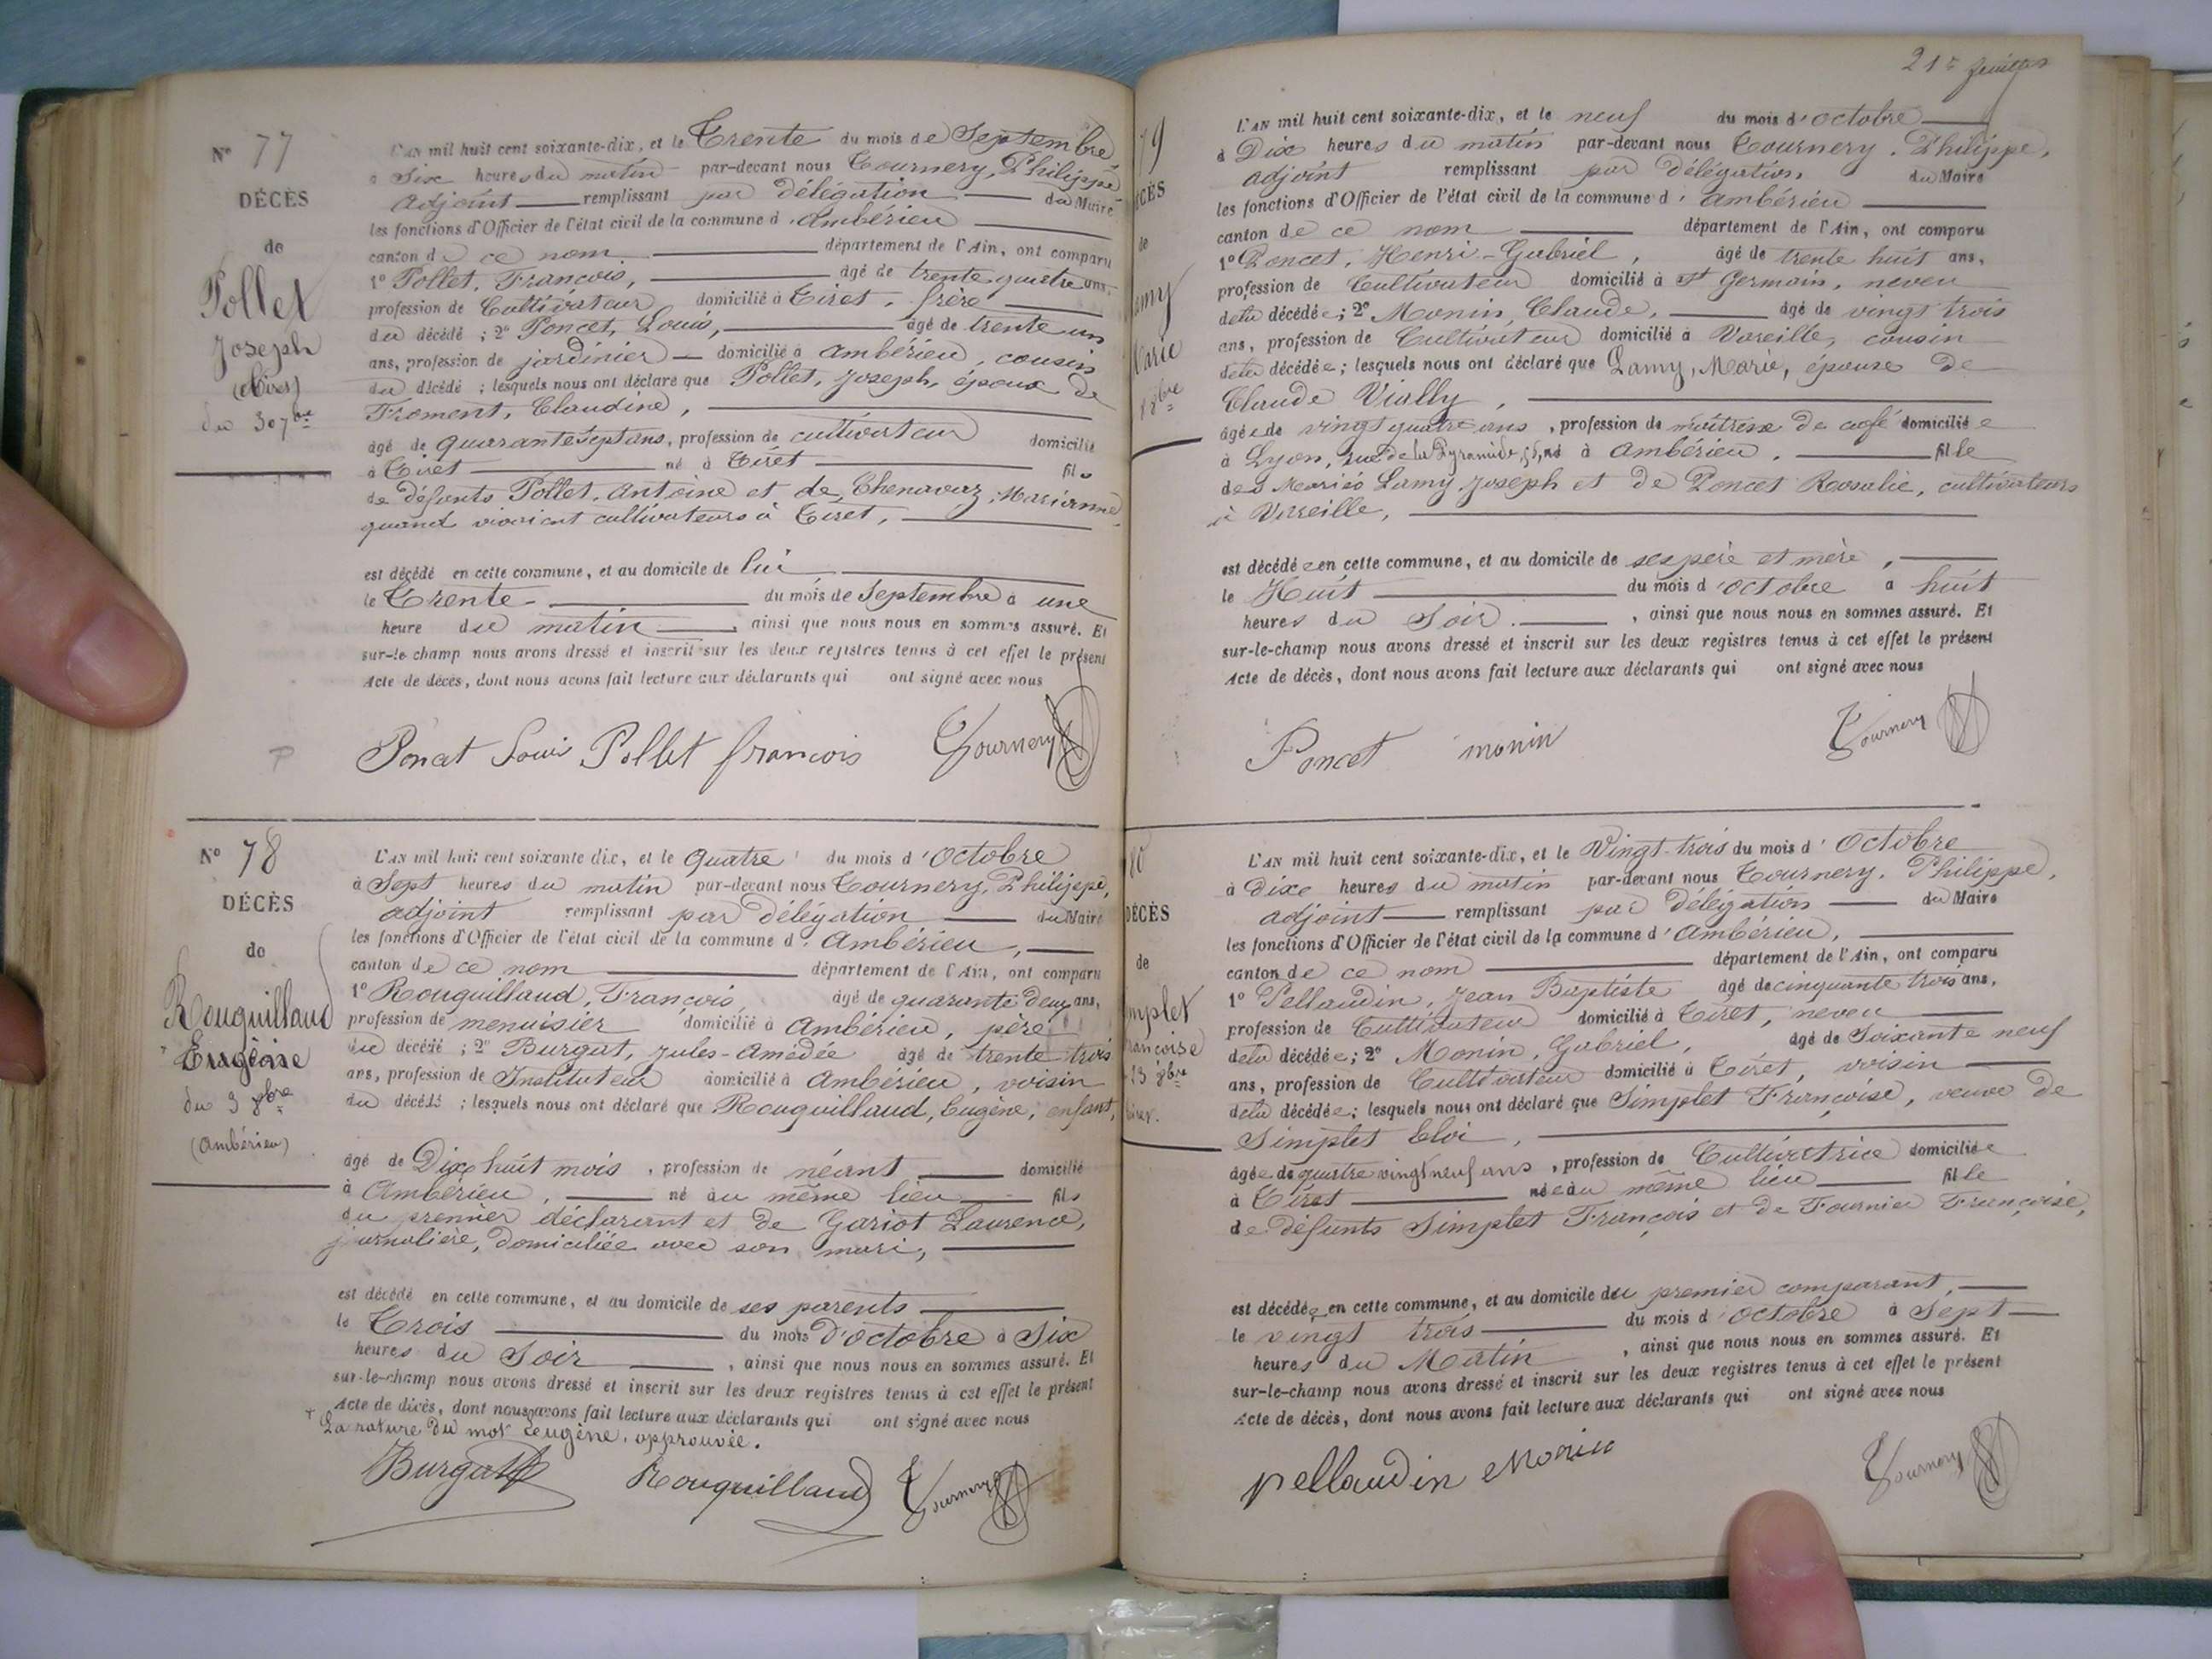 N° 77
DÉCÈS
de
Pollet
Joseph
(Tiret)
du 30 7bre
L'AN mil huit cent soixante-dix, et le Trente du mois de Septembre
à Six heures du matin par-devant nous Tournery, Philippe
adjoint remplissant par délégation du Maire
les fonctions d'Officier de l'état civil de la commune d'Ambérieu
canton de ce nom département de l'Ain, ont comparu
1° Pollet, François, âgé de trente quatre ans,
profession de Cultivateur domicilié à Tiret, frère
du décédé ; 2° Poncet, Louis, âgé de trente un
ans, profession de jardinier domicilié à Ambérieu, cousin
du décédé ; lesquels nous ont déclaré que Pollet, Joseph, époux de
Froment, Claudine,
âgé de quarante sept ans, profession de cultivateur domicilié
à Tiret né à Tiret fils
de défunts Pollet, Antoine et de Chenavaz, Marianne
quand vivaient cultivateurs à Tiret,
est décédé en cette commune, et au domicile de lui
le Trente du mois de Septembre à une
heure du matin, ainsi que nous nous en sommes assuré. Et
sur-le-champ nous avons dressé et inscrit sur les deux registres tenus à cet effet le présent
Acte de décès, dont nous avons fait lecture aux déclarants qui ont signé avec nous
Poncet Louis Pollet françois Tournery
N° 78
DÉCÈS
de
Rouguillaud
Eugène
du 3 8bre
(Ambérieu)
L'AN mil huit cent soixante dix, et le Quatre du mois d'Octobre
à Sept heures du matin par-devant nous Tournery, Philippe,
adjoint remplissant par délégation du Maire
les fonctions d'Officier de l'état civil de la commune d'Ambérieu,
canton de ce nom département de l'Ain, ont comparu
1° Rouguillaud, François, âgé de quarante deux ans,
profession de menuisier domicilié à Ambérieu, père
du décédé ; 2° Burgat, Jules-Amédée âgé de trente trois
ans, profession de Instituteur domicilié à Ambérieu, voisin
du décédé ; lesquels nous ont déclaré que Rouguillaud, Eugène, enfant,
âgé de Dix huit mois, profession de néant domicilié
à Ambérieu, né au même lieu fils
du premier déclarant et de Gariot Laurence,
journalière, domiciliée avec son mari,
est décédé en cette commune, et au domicile de ses parents
le Trois du mois d'Octobre à Six
heures du Soir, ainsi que nous nous en sommes assuré. Et
sur-le-champ nous avons dressé et inscrit sur les deux registres tenus à cet effet le présent
Acte de décès, dont nous avons fait lecture aux déclarants qui ont signé avec nous
+ La rature du mot Eugène, approuvée.
Burgat Rouquillaud Tournery
21e feuillet
79
ÉCÈS
de
Lamy
Marie
8bre
L'AN mil huit cent soixante-dix, et le neuf du mois d'octobre
à Dix heures du matin par-devant nous Tournery, Philippe,
adjoint remplissant par délégation, du Maire
les fonctions d'Officier de l'état civil de la commune d'Ambérieu
canton de ce nom département de l'Ain, ont comparu
1° Poncet, Henri-Gabriel, âgé de trente huit ans,
profession de Cultivateur domicilié à St Germain, neveu
de la décédée ; 2° Monin, Claude, âgé de vingt trois
ans, profession de Cultivateur domicilié à Vareille, cousin
de la décédée ; lesquels nous ont déclaré que Lamy, Marie, épouse de
Claude Vially,
âgée de vingt quatre ans, profession de maîtresse de café domiciliée
à Lyon, rue de la Pyramide, née à Ambérieu, fille
des Mariés Lamy Joseph et de Poncet Rosalie, cultivateurs
à Vareille,
est décédée en cette commune, et au domicile de ses père et mère,
le Huit du mois d'octobre à huit
heures du Soir, ainsi que nous nous en sommes assuré. Et
sur-le-champ nous avons dressé et inscrit sur les deux registres tenus à cet effet le présent
Acte de décès, dont nous avons fait lecture aux déclarants qui ont signé avec nous
Poncet monin Tournery
80
DÉCÈS
de
implet
rançoise
23 8bre
L'AN mil huit cent soixante-dix, et le Vingt-trois du mois d'Octobre
à Dix heures du matin par-devant nous Tournery, Philippe,
adjoint remplissant par délégation du Maire
les fonctions d'Officier de l'état civil de la commune d'Ambérieu,
canton de ce nom département de l'Ain, ont comparu
1° Pellaudin, Jean Baptiste âgé de cinquante trois ans,
profession de Cultivateur domicilié à Tiret, neveu
de la décédée ; 2° Monin, Gabriel, âgé de Soixante neuf
ans, profession de Cultivateur domicilié à Tiret, voisin
de la décédée ; lesquels nous ont déclaré que Simplet Françoise, veuve de
Simplet Eloi,
âgée de quatre vingt neuf ans, profession de Cultivatrice domiciliée
à Tiret née au même lieu fille
de défunts Simplet François et de Fournier Françoise,
est décédée en cette commune, et au domicile du premier comparant,
le vingt trois du mois d'octobre à Sept
heures du Matin, ainsi que nous nous en sommes assuré. Et
sur-le-champ nous avons dressé et inscrit sur les deux registres tenus à cet effet le présent
Acte de décès, dont nous avons fait lecture aux déclarants qui ont signé avec nous
Pellaudin Monin Tournery